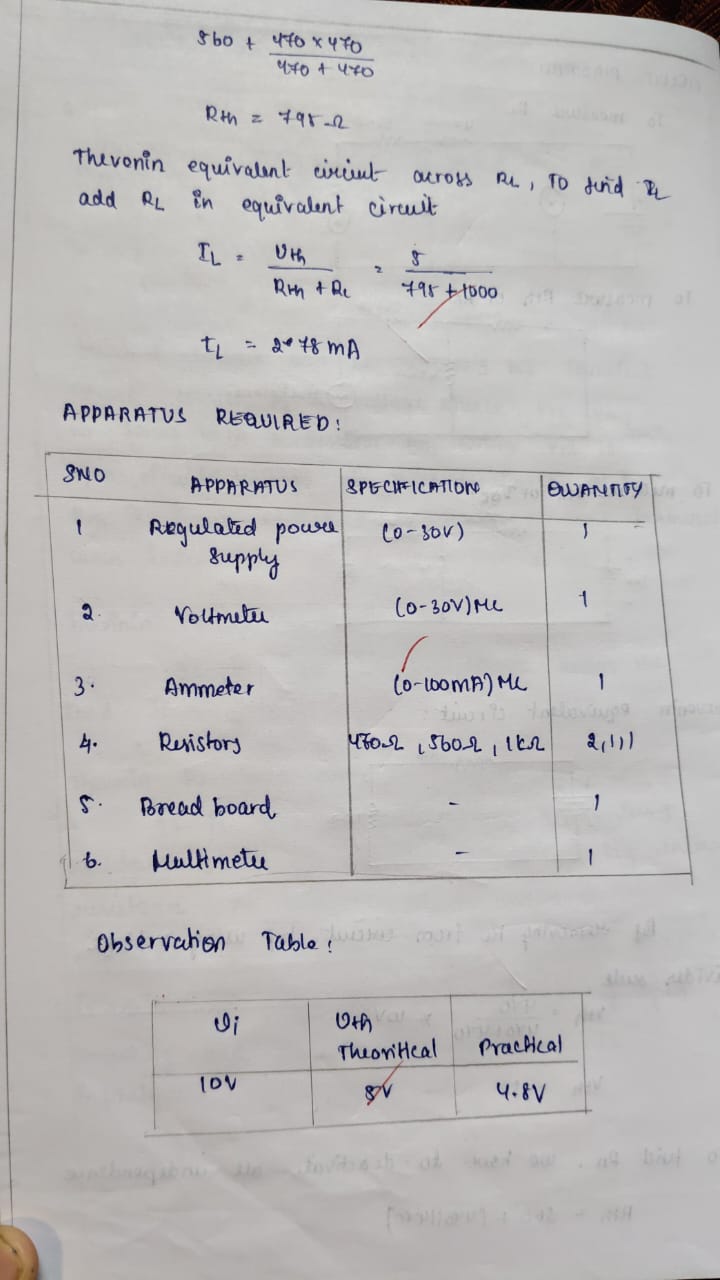 560 + 470 × 470 / 470 + 470
Rth = 795 Ω
Thevonin equivalent circuit across RL, To find IL
add RL in equivalent circuit
IL = Vth / Rth + RL = 5 / 795 + 1000
IL = 2.78 mA
APPARATUS REQUIRED:
SNO APPARATUS SPECIFICATION QUANTITY
1 Regulated power supply (0-30V) 1
2. Voltmeter (0-30V) MC 1
3. Ammeter (0-100mA) MC 1
4. Resistors 470Ω, 560Ω, 1kΩ 2,1,1
5. Bread board - 1
6. Multimeter - 1
Observation Table:
Vi Vth Theoritical Practical
10V 5V 4.8V